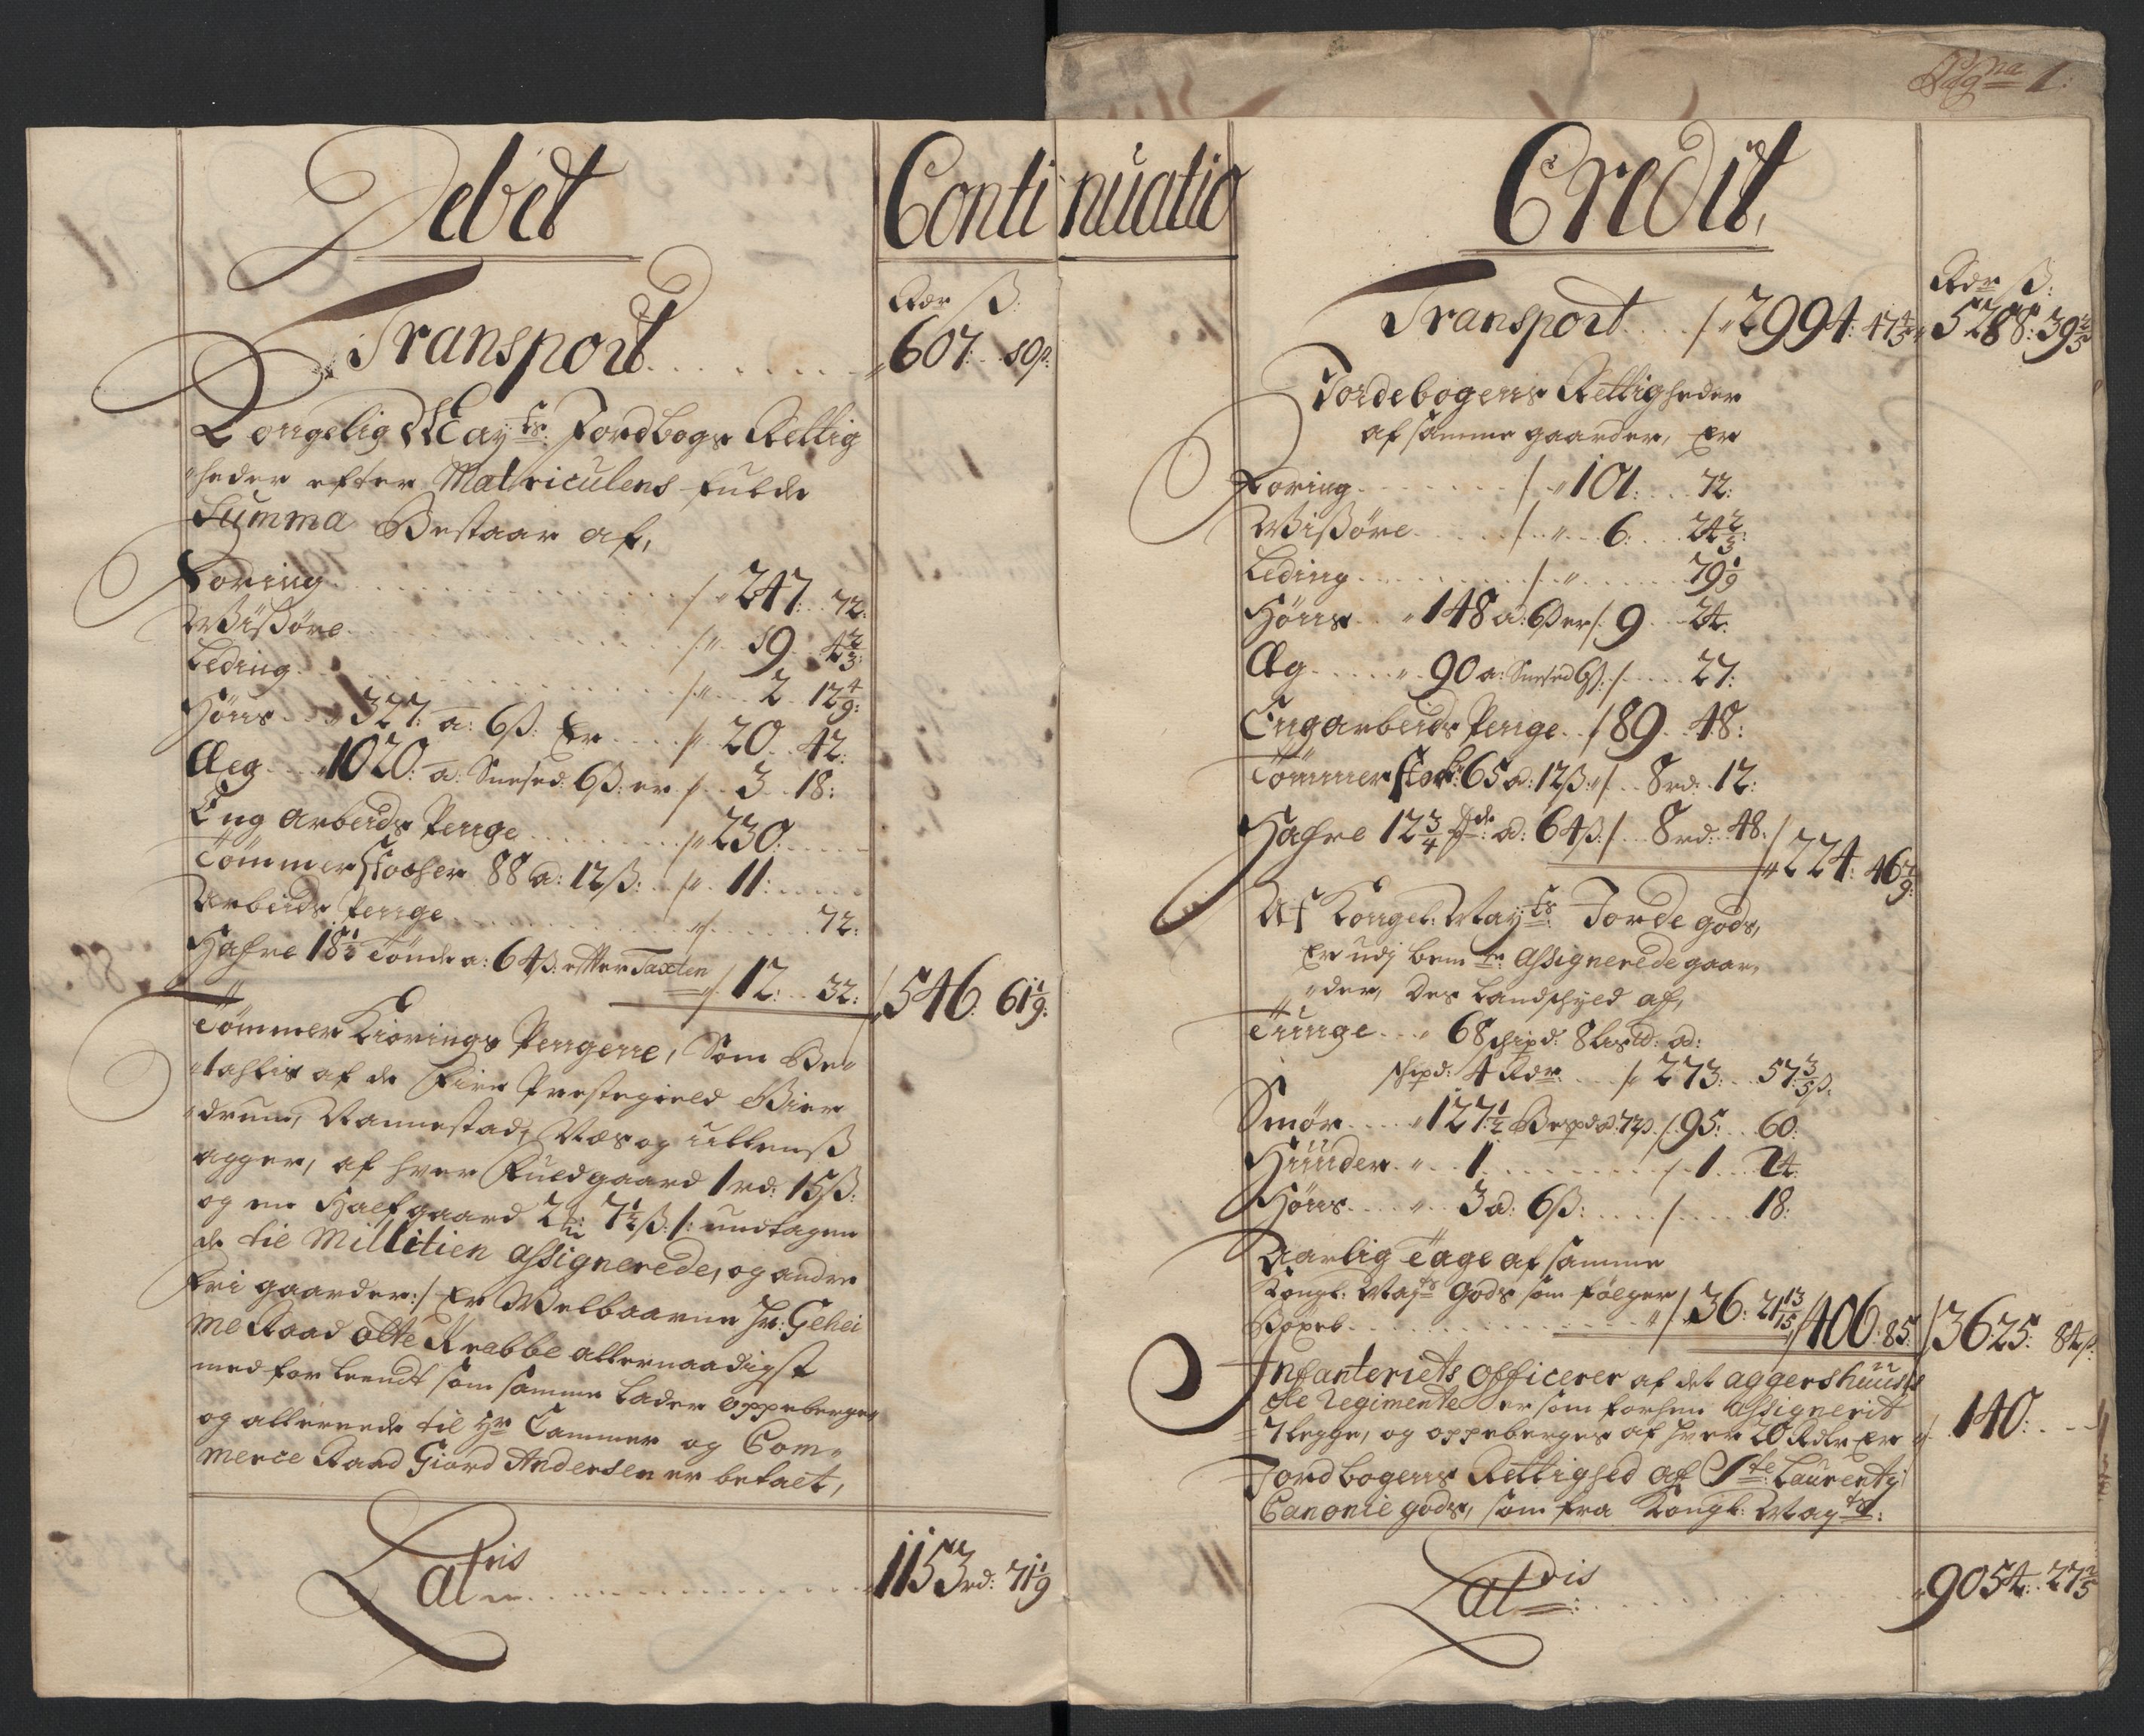 Pag<sup>na</sup> 1:
Debet
Continuatio
Rdr ß:
Transport . . . . . . . . 607: 10ß:
Kongelig Mayts: Jordbogs Rettig
heder efter Matriculens fulde
Summa Bestaar af,
Foring . . . . . . . . /: 247: 72:
Wißøre . . . . . . . . /: 19. 4 2/3:
Leding . . . . . . . . /: 2. 12 4/9:
Høns . . 327: a: 6ß: Er . . . . /: 20. 42:
Æeg . . 1020: a: Snesed: 6ß: er /: 3. 18:
Eng arbeids Penge . . . . . . /: 230: . .
Tømmer stocher 88 a: 12ß: . . /: 11: . . .
Arbeids Penge . . . . . . . . /: . . . 72:
Hafre 18 1/2 Tønde a: 64ß: efter Taxten /: 12: . . 32: /546: 61 1/9:
Tømmer Kiørings Pengene, Som Be=
tahlis af de Fire Prestegield Bier
drum, Nannestad, Næs og Ullens
agger, af hver Fuldgaard 1 rd: 15ß:
og en Half gaard 7 1/2ß: /: undtagen
de til Millitien assignerede, og andre
fri gaarder: / Er Welbaarne Hr: Gehei
me Raad otte Krabbe allernaadigst
med forleendt som samme lader oppeberge
og allerede til Hr Cammer og Com=
merce Raad Giord Andersen er betalt,
Lateris . . . . . . . . 1153 rd: 71 1/9
Credit,
Rdr ß:
Transport . . . . /: 2994: 47 4/5 5288: 39 2/5
Jordebogens Rettigheder
af samme gaarder, Er
Foring . . . . . . /: 101: . . 72:
Wißøre . . . . . . /: 6: . . 24 2/3:
Leding . . . . . . /: . . . 79 1/9
Høns . . 148 a: 6ß er /: 9 . . 24:
Æg . . . . 90 a: Snesed 6ß: / . . . 27:
Engarbeids Penge . . /89 . . 48:
Tømmer stok: 65 a: 12ß: /. . 8rd: 12:
Hafre 12 3/4 Tde: a: 64ß: /. . 8rd: 48: / 224: 46 7/9:
Af Kongel: Mayts: Jorde gods,
Er udj bemte: assignerede gaar,
der, Des Landschyld af,
Tunge . . . 68 schipd: 8 Lispd: ad:
schipd: 4 Rdr: . . . /: 273: . . 57 3/5ß:
Smør . . . 127 1/2 Bispd a: 72ß /: 95: . . 60:
Huuder . . . 1 . . . . . . . /: 1 . . 24:
Høns . . . . 3 a: 6ß: . . . . / . . . . 18:
Aarlig Tage af samme
Kongl: Mayts: Gods som følger
/: 36: 21 13/15 /406: 85: /3625: 84ß:
Infanteriets Officerer af det aggershuusi
ste Regimente er som forhen assignerit
7 legge, og oppeberges af hver 20 Rdlr Er 140: . . .
Jordbogens Rettighed af Ste: Laurentij
Canonie gods, som fra Kongl: Mayts:
Lateris: . . . . . . . . 9054: 27 2/5